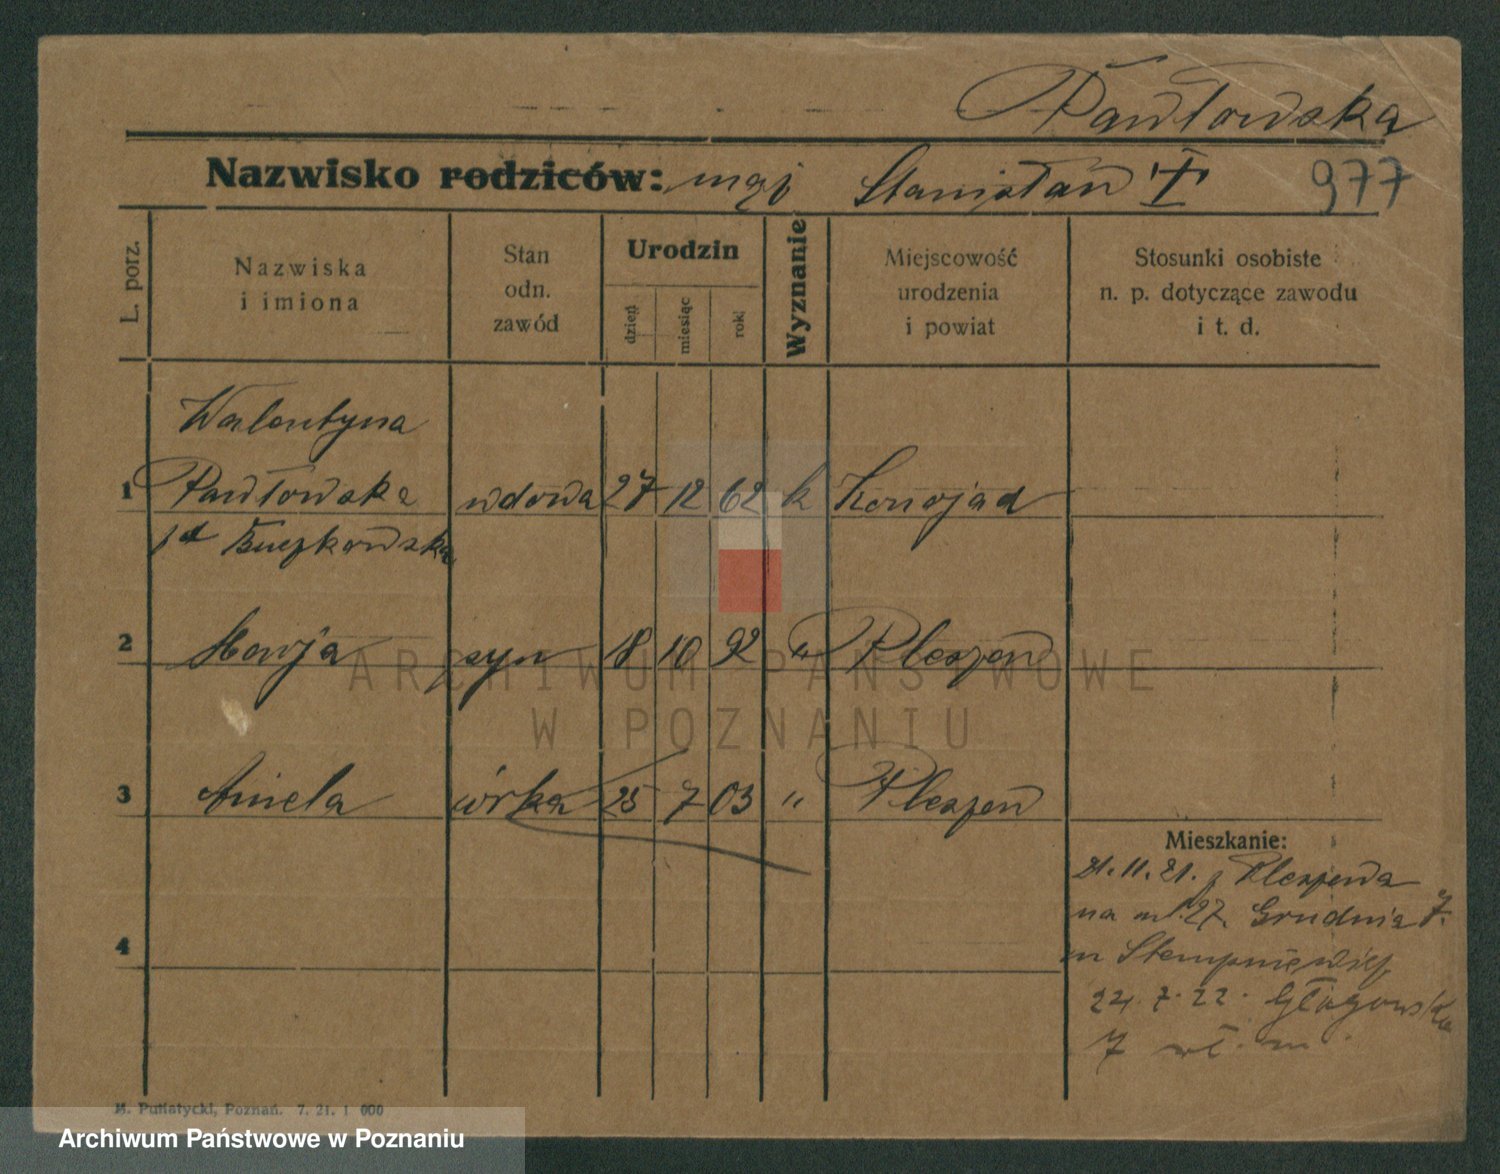 Pawłowska
Nazwisko rodziców: mąż Stanisław 977
L. porz.
Nazwiska
i imiona
Stan
odn.
zawód
Urodzin
dzień
miesiąc
rok
Wyznanie
Miejscowość
urodzenia
i powiat
Stosunki osobiste
n. p. dotyczące zawodu
i t. d.
Walentyna
1 Pawłowska wdowa 27 12 62 k Konojad
Buczkowska
2 Marja syn 18 10 92 " Pleszew
3 Aniela córka 25 7 03 " Pleszew
Mieszkanie:
21.11.21. z Pleszewa
na ul. 27. Grudnia 7.
22 Głogowska
7
4
Putiatycki, Poznań. 7. 21. 1 000
ARCHIWUM PAŃSTWOWE
W POZNANIU
Archiwum Państwowe w Poznaniu